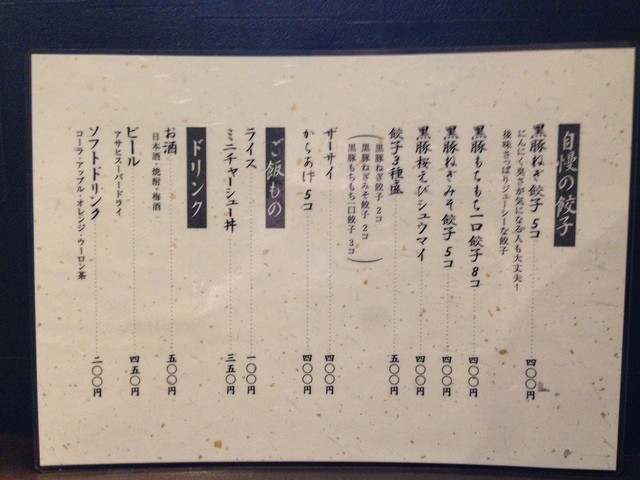 自慢の餃子
黒豚ねぎ餃子 5コ 四〇〇円
にんにく臭さが気になる人も大丈夫！
後味さっぱりジューシーな餃子
黒豚もちもち一口餃子 8コ 四〇〇円
黒豚ねぎみそ餃子 5コ 四〇〇円
黒豚桜えびシュウマイ 四〇〇円
餃子3種盛 五〇〇円
（黒豚ねぎ餃子 2コ
黒豚ねぎみそ餃子 2コ
黒豚もちもち一口餃子 3コ）
ザーサイ 四〇〇円
からあげ 5コ 四〇〇円
ご飯もの
ライス 一〇〇円
ミニチャーシュー丼 三五〇円
ドリンク
お酒 五〇〇円
日本酒・焼酎・梅酒
ビール 四五〇円
アサヒスーパードライ
ソフトドリンク 二〇〇円
コーラ・アップル・オレンジ・ウーロン茶